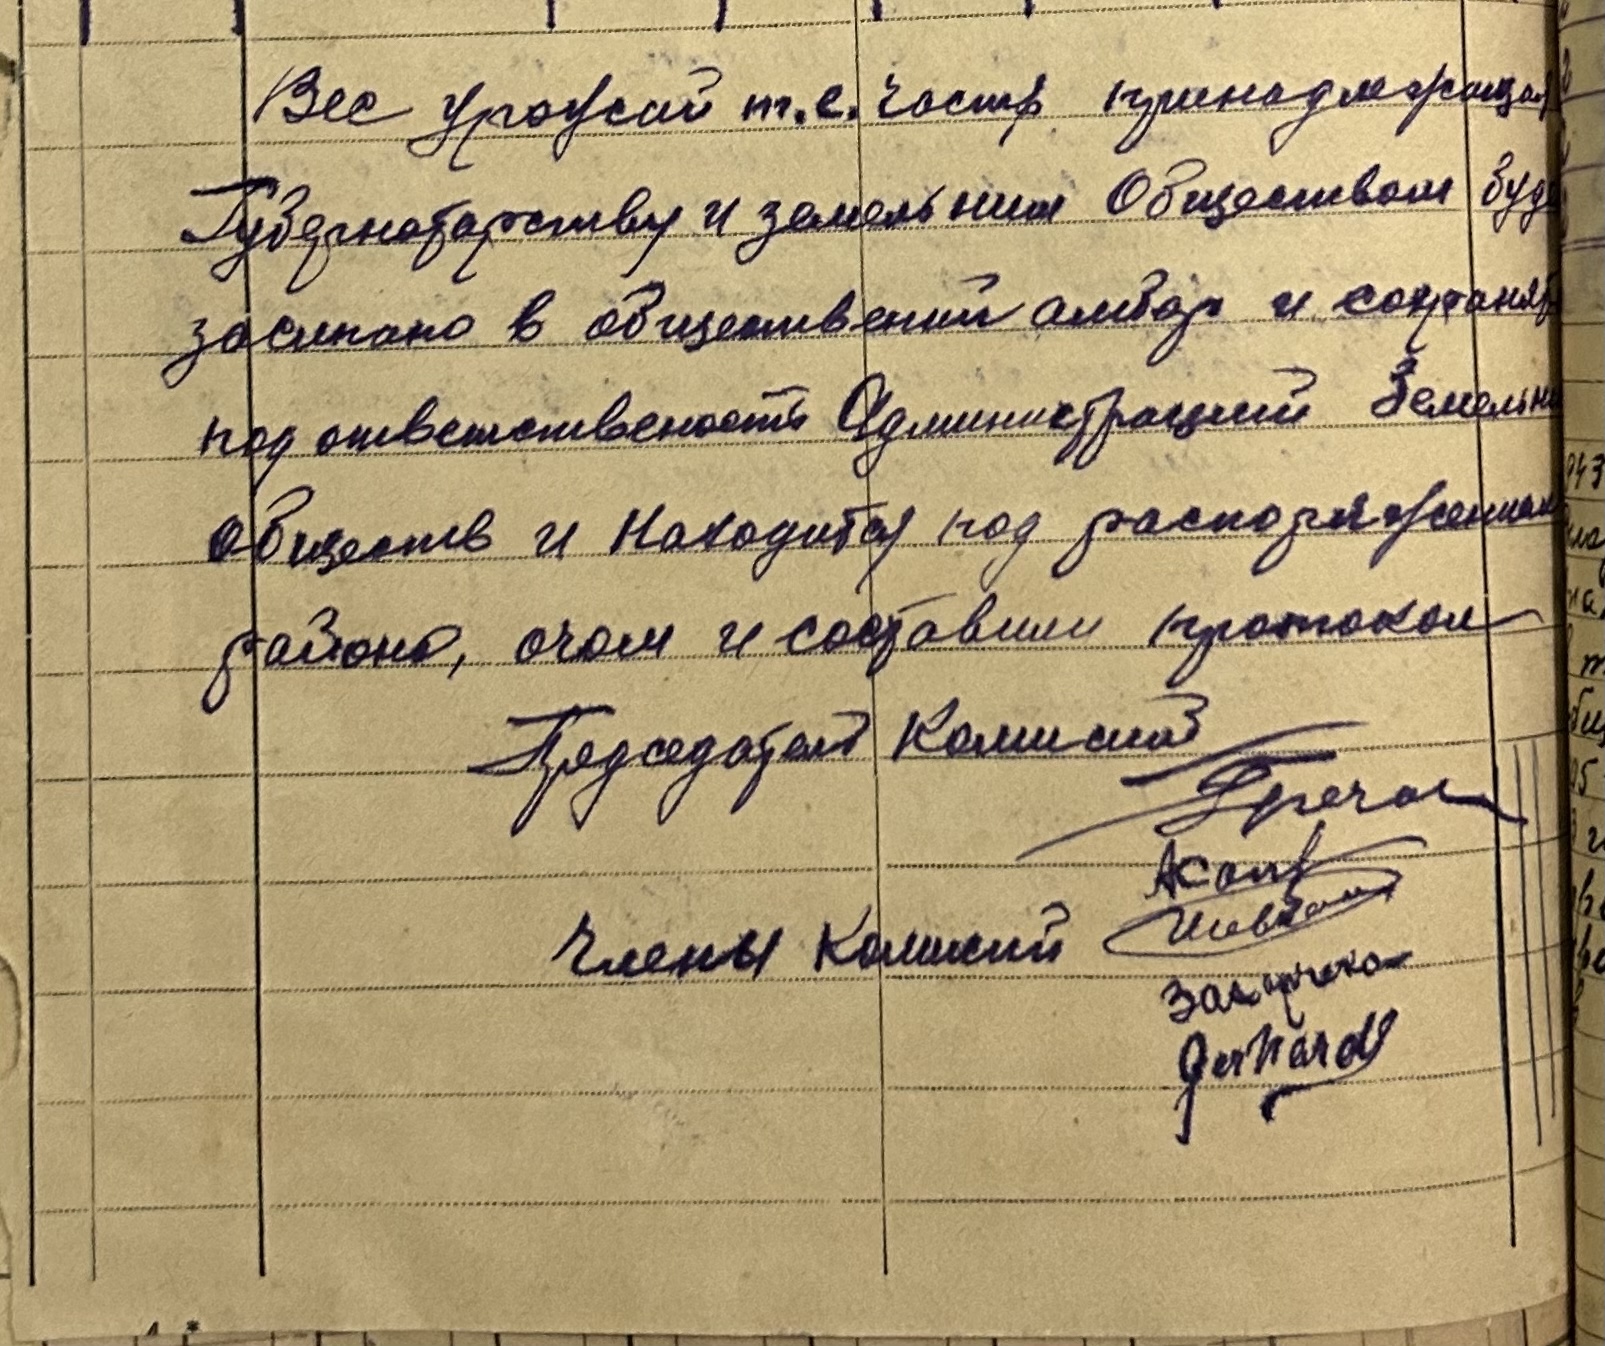 Вес урожай т.е. часть принадлежащая
Губернотарству и земельним Обществом буд
засипано в обществений амбар и сохранят
под ответственость Администраций Земельни
Обществ и находится под распоряжением
района, очом и составили протокол
Председатель Комисий
Гречан
Члены Комисий
Захарченко
Gerhard